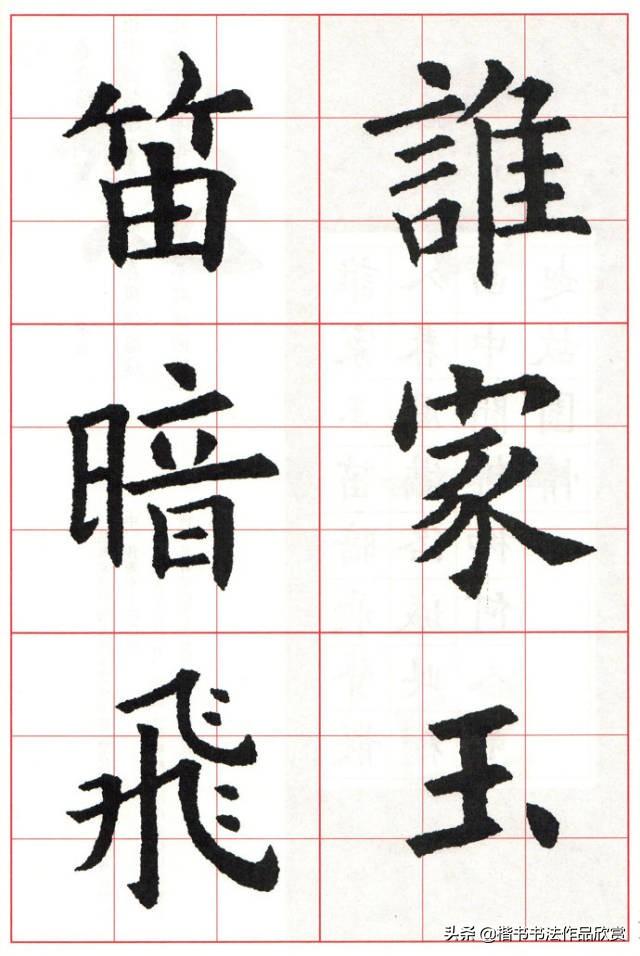 誰家玉
笛暗飛
头条 @楷书书法作品欣赏